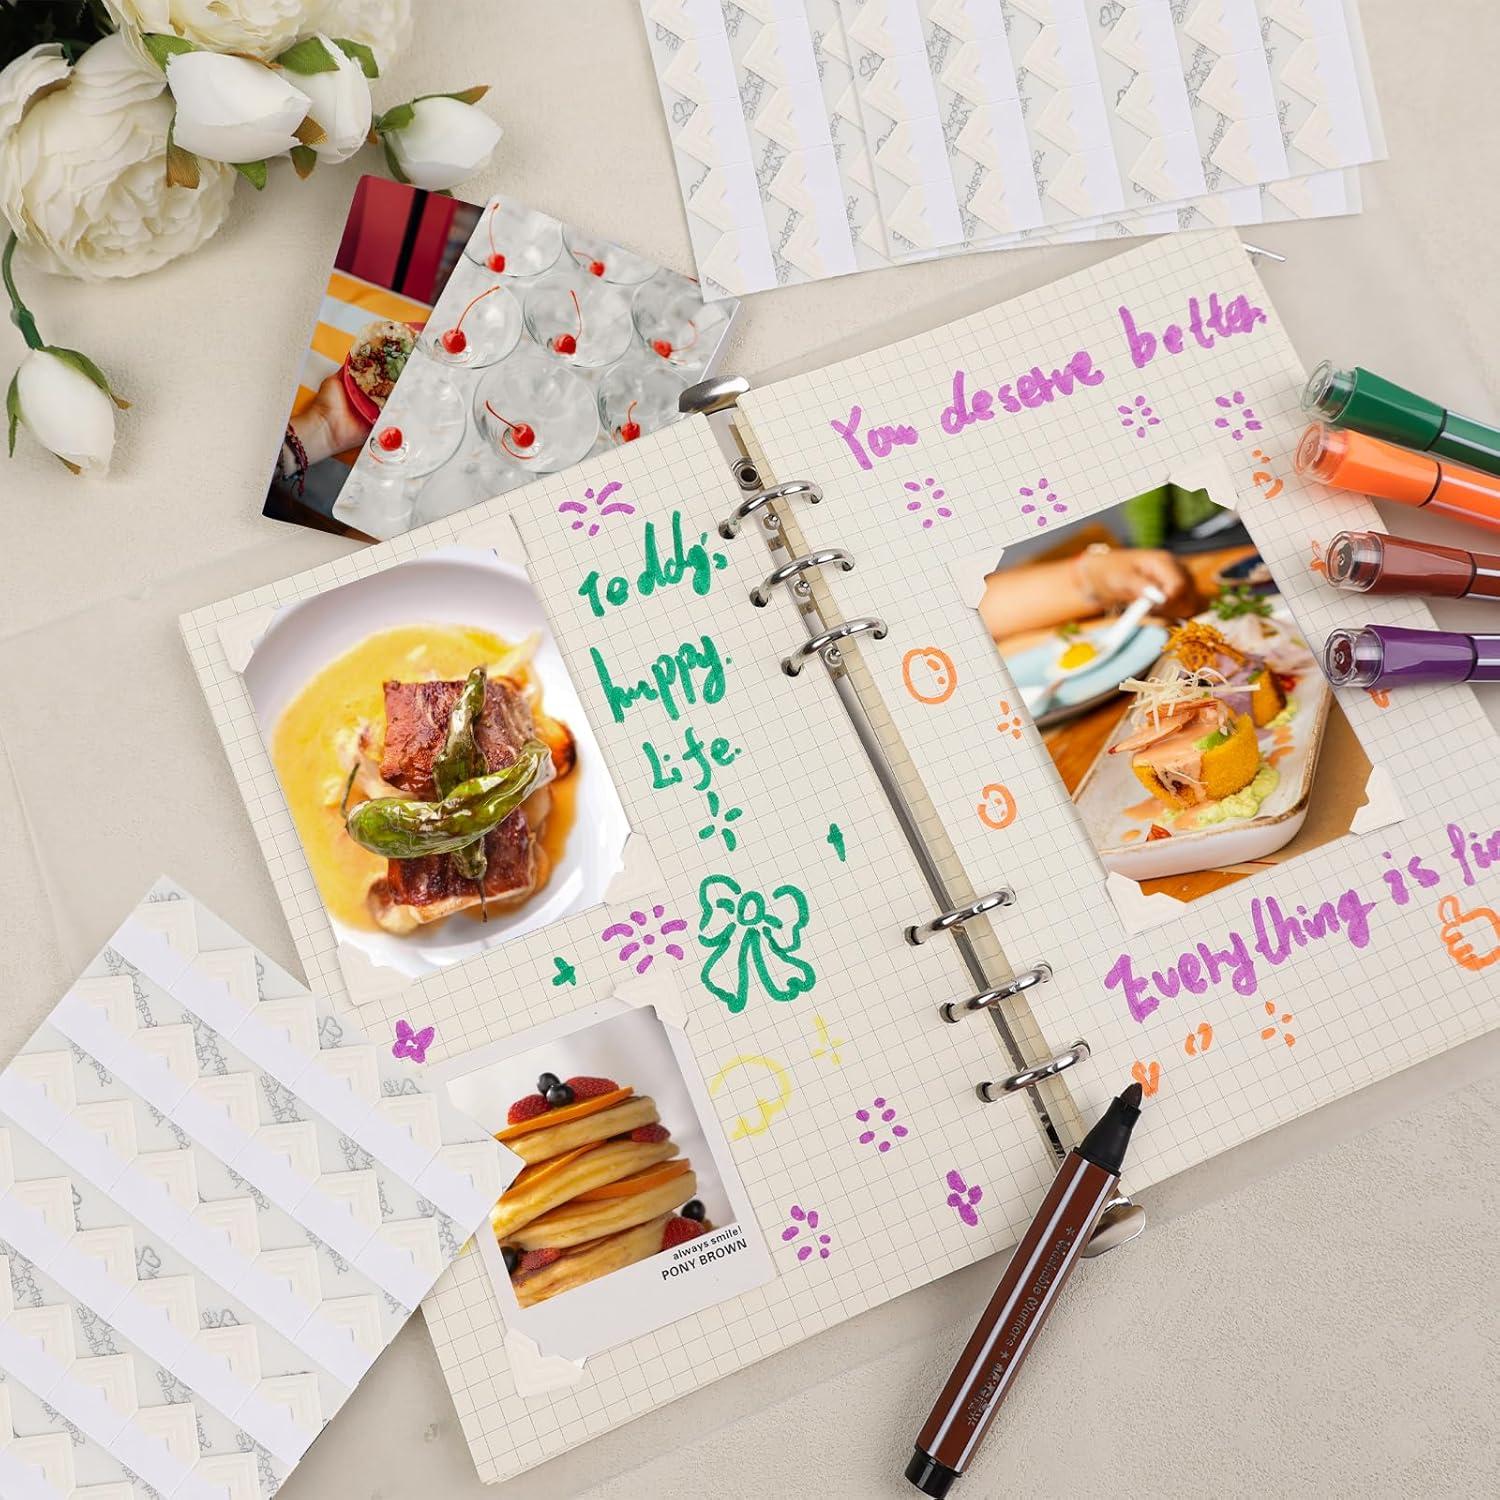 You deserve better.
Teddy's
happy.
Life.
Everything is fin
always smile!
PONY BROWN
Washable Markers